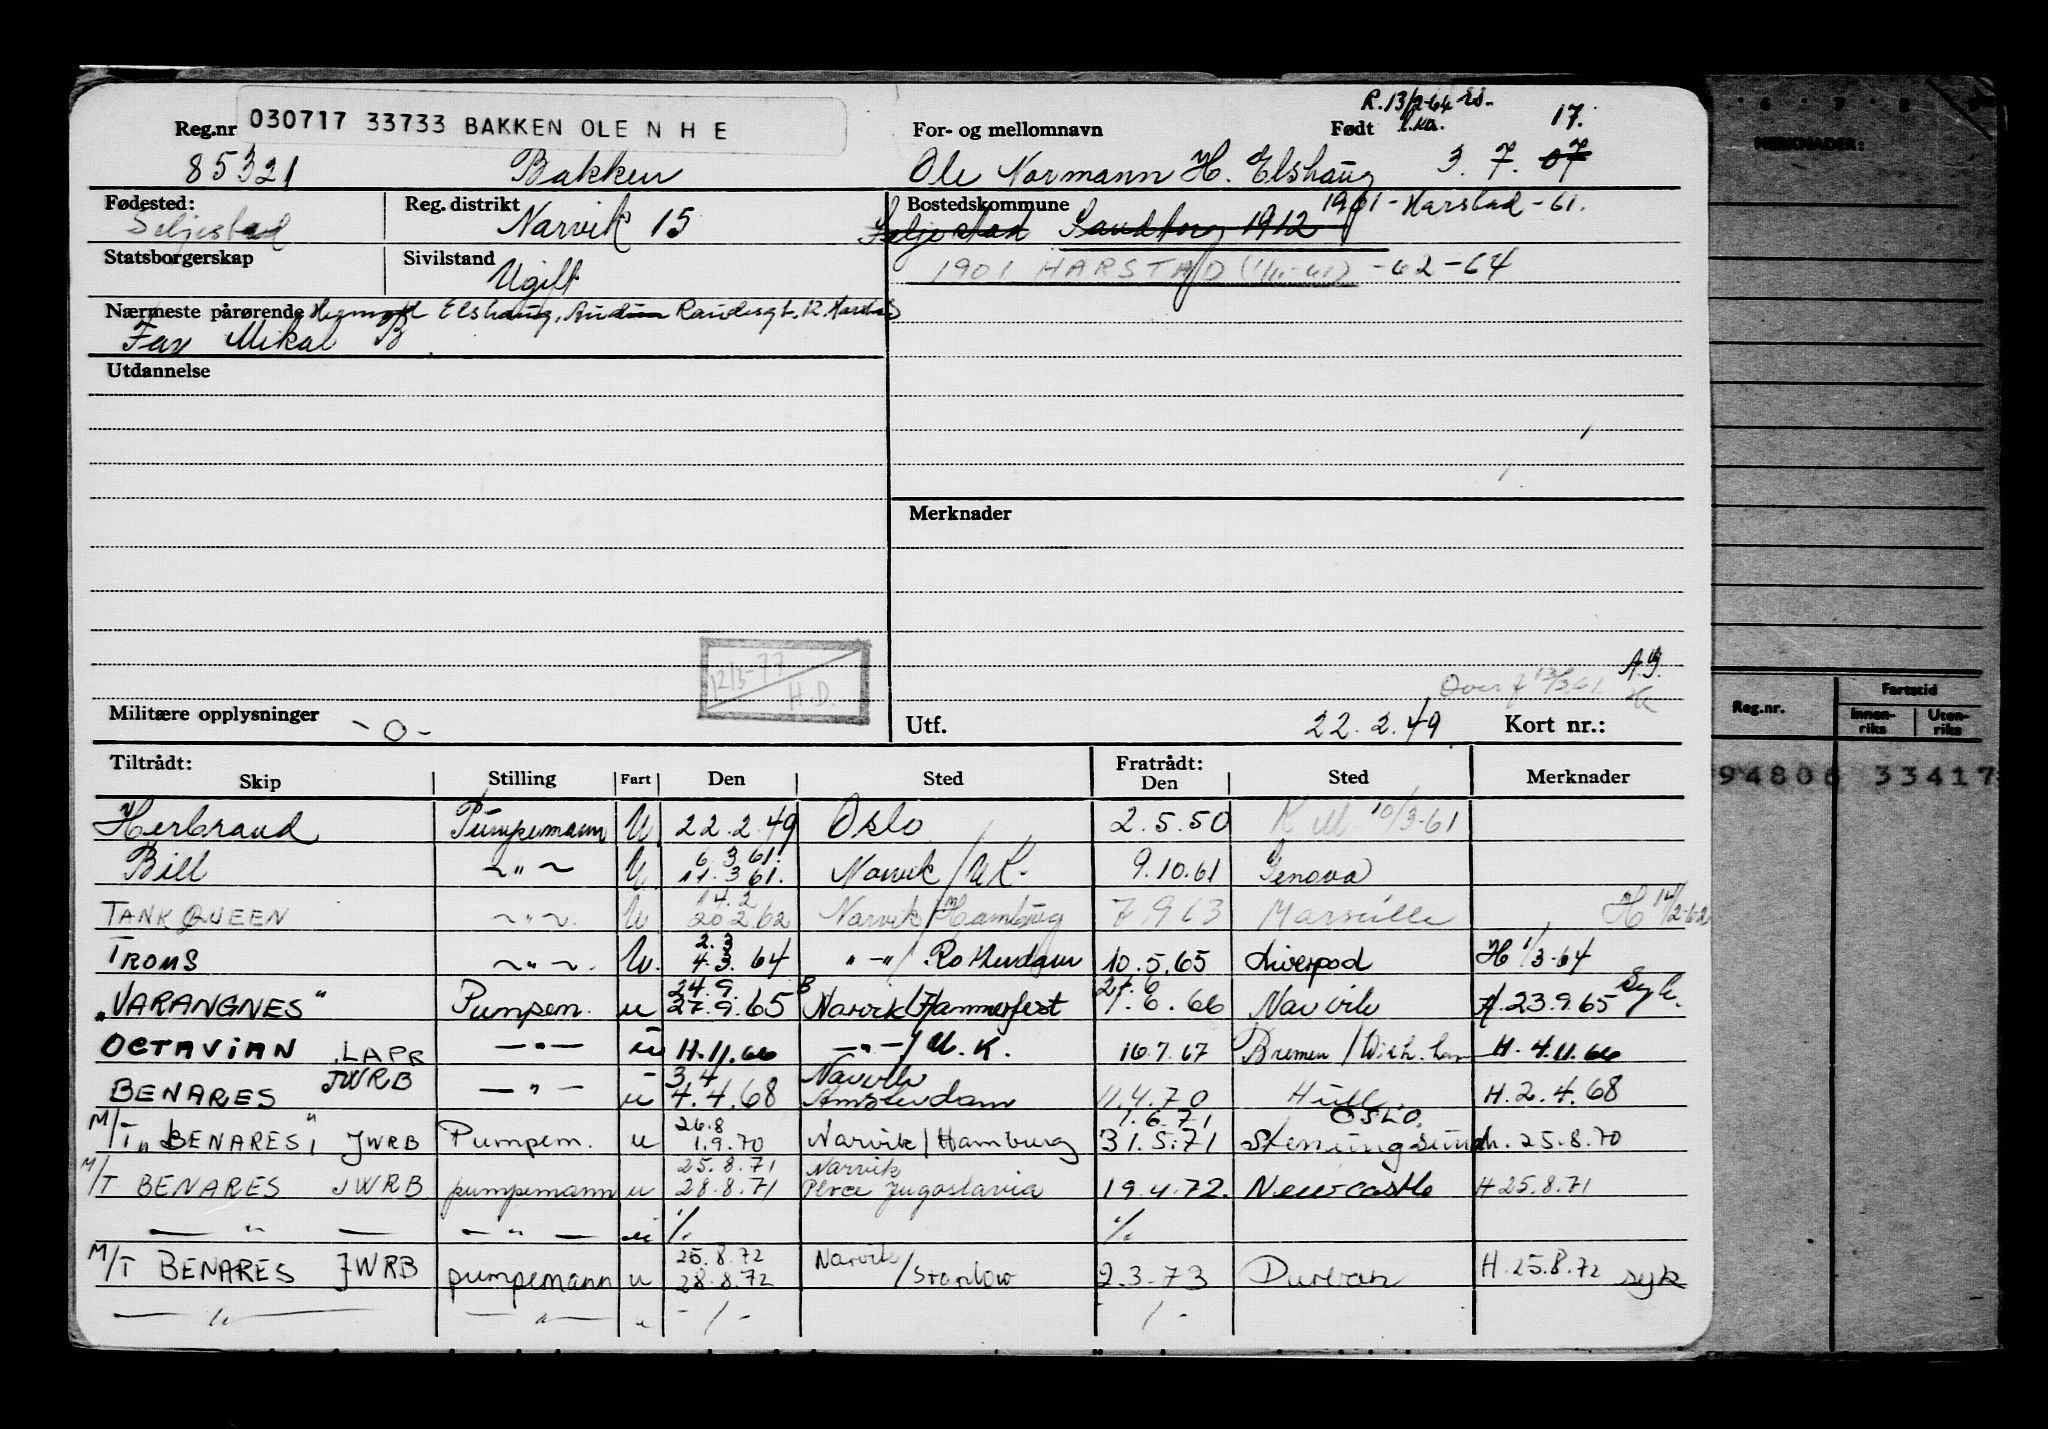 R. 13/2-64
Reg.nr 030717 33733 BAKKEN OLE N H E For- og mellomnavn Født 17.
85321 Bakken Ole Normann H. Elshaug 3. 7. 07
Fødested: Reg. distrikt Bostedskommune 1901 - Harstad - 61.
Seljestad Narvik 15 Seljestad Sandtorg 1912
Statsborgerskap Sivilstand 1901 HARSTAD (1/11-61) - 62 - 64
Ugift
Nærmeste pårørende Elshaug, 12 Harstad
Far Mikal B
Utdannelse
Merknader
12/3-77 H.D.
A.B.
Overf 13/3 61
Militære opplysninger - 0 - Utf. 22. 2. 49 Kort nr.:
Tiltrådt: Fratrådt:
Skip Stilling Fart Den Sted Den Sted Merknader
Herbrand Pumpemann U 22.2.49 Oslo 2.5.50 K M 10/3-61
6 3 61.
Bill ~ " ~ U 11.3 61. Narvik / U K. 9.10.61 Genova
14.2
TANK QUEEN ~ " ~ U. 20 2.62 Narvik / Hamburg 7 9 63 Marseille H 14/2-62
2.3
TROMS ~ " ~. U. 4.3. 64 " - " / Rotterdam 10.5.65 Liverpool H 1/3-64
24.9. 27.6
"VARANGNES" Pumpem. u 27.9.65 Narvik / Hammerfest 1.6.66 Narvik H. 23.9.65 Syk.
OCTAVIAN LAPR — " — u 11.11.66 — " — / U.K. 16.7.67 Bremen / H. 4.11.66
3.4 Narvik
BENARES JWRB — " — u 4.4.68 Amsterdam 11.4.70 Hull H. 2.4.68
26.8 1.6.71 OSLO.
M/T "BENARES" JWRB Pumpem. u 1.9.70 Narvik / Hamburg 31.5.71 Stenungsund h. 25.8.70
25.8.71 Narvik
M/T BENARES JWRB pumpemann u 28.8.71 Ploce Jugoslavia 19.4.72. Newcastle H 25.8.71
— " — — " — u %. %.
25.8.72 Narvik
M/T BENARES JWRB pumpemann u 28.8.72 / Stanlow 2.3.73 Durban H. 25.8.72 syk
— " — — " — u - / - - / -
6 7 8 9
MERKNADER:
Reg.nr. Fartstid
Innen-riks Uten-riks
94806 33417